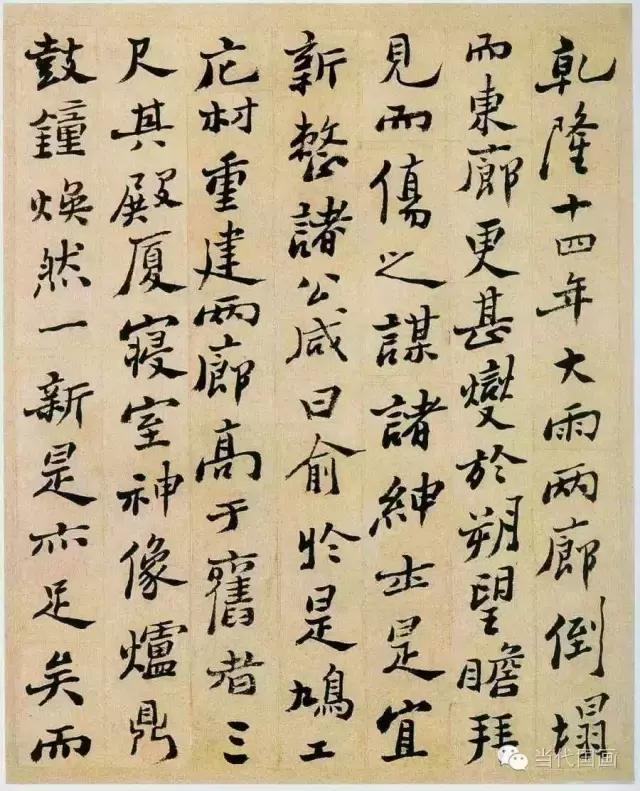 乾隆十四年大雨兩廊倒塌
而東廊更甚燮於朔望瞻拜
見而傷之謀諸紳士是宜
新整諸公咸曰俞於是鳩工
庀材重建兩廊高于舊者三
尺其殿廈寢室神像爐鼎
鼓鐘煥然一新是亦足矣而
当代国画